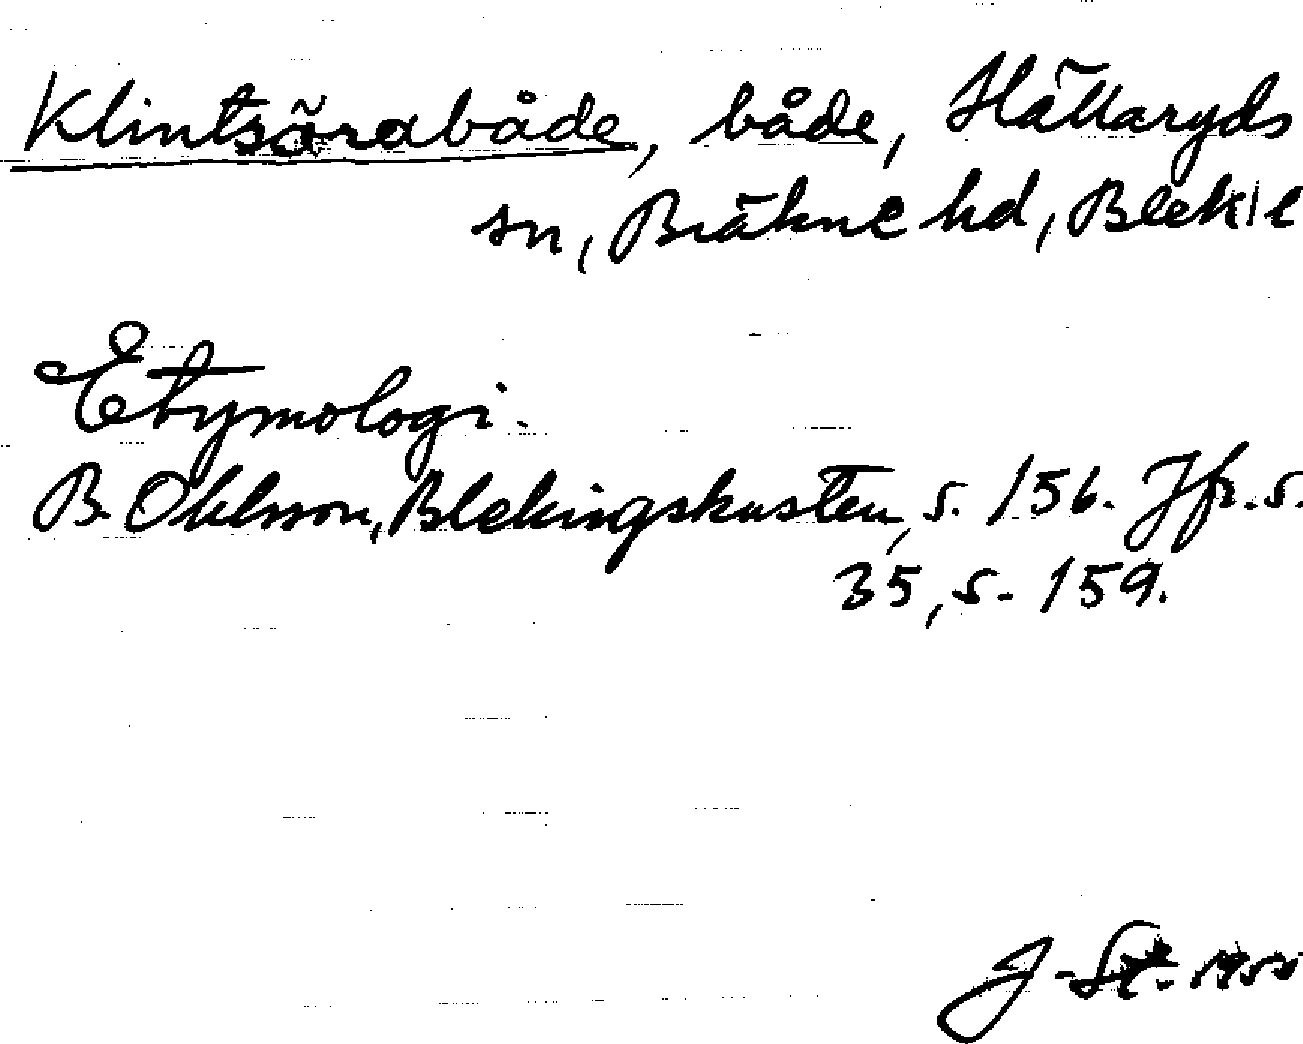 Klintsörabåde, både, Hällaryds
sn, Bräkne hd, Blek. l
Etymologi.
B. Ohlsson, Blekingskusten, s. 156. Jfr. s.
35, s. 159.
J. St.